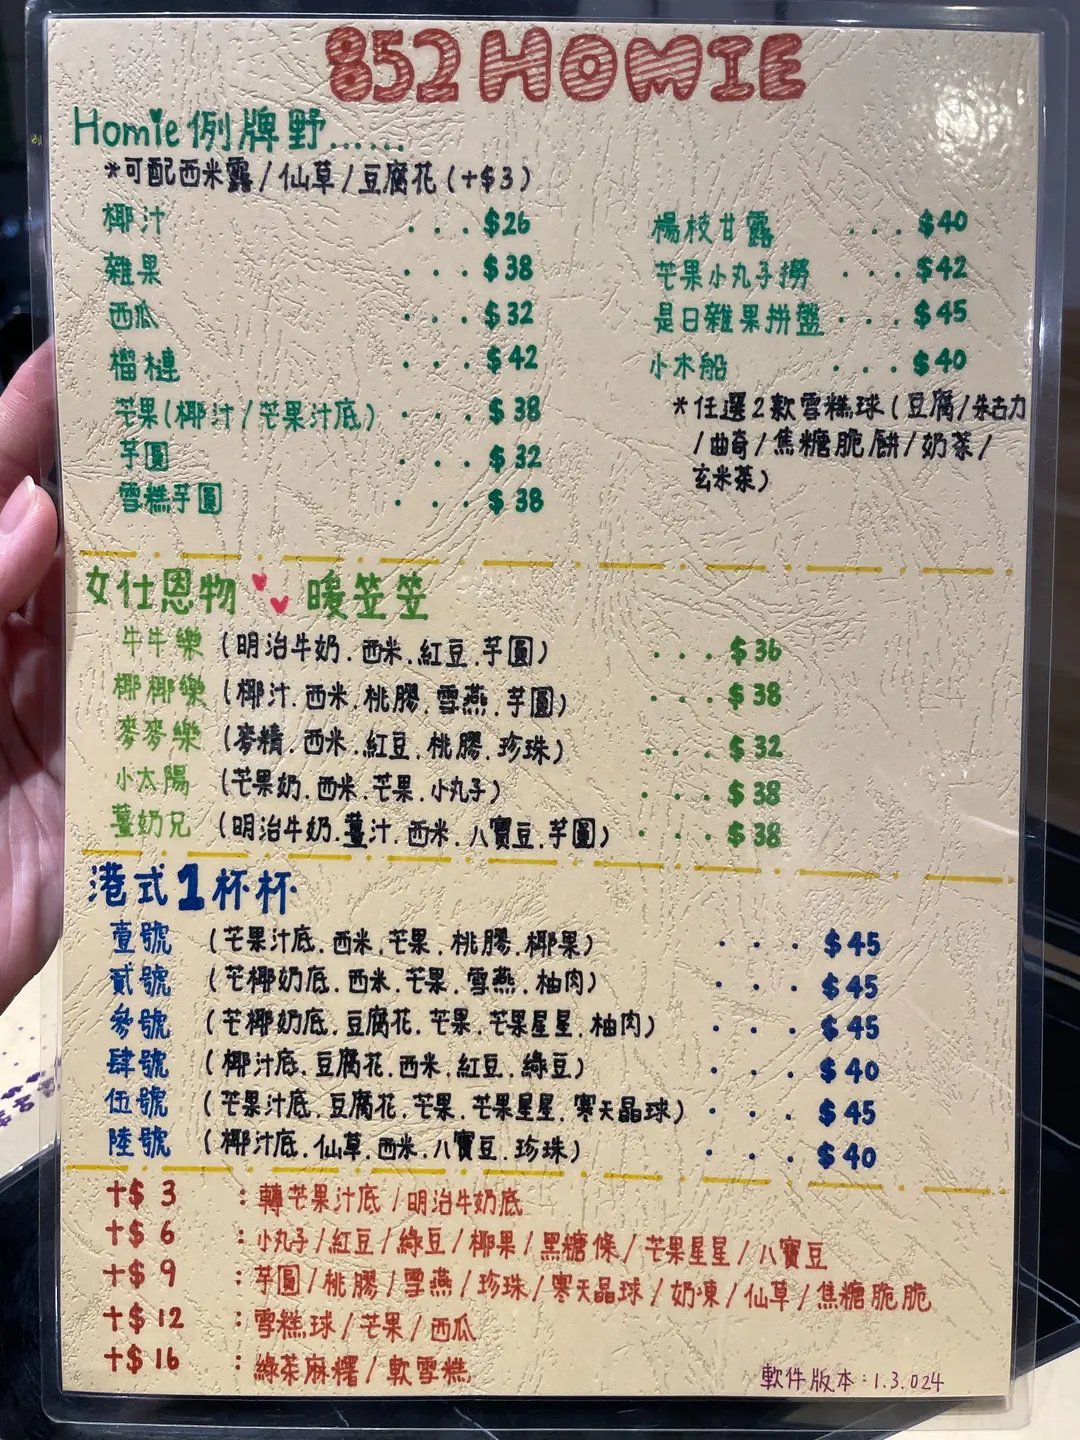 852 HOMIE
Homie 例牌野......
*可配西米露/仙草/豆腐花(+$3)
椰汁 ... $26
雜果 ... $38
西瓜 ... $32
榴槤 ... $42
芒果(椰汁/芒果汁底) ... $38
芋圓 ... $32
雪糕芋圓 ... $38
楊枝甘露 ... $40
芒果小丸子撈 ... $42
是日雜果拼盤 ... $45
小木船 ... $40
*任選2款雪糕球(豆腐/朱古力
/曲奇/焦糖脆餅/奶茶/
玄米茶)
女仕恩物 暖笠笠
牛牛樂 (明治牛奶.西米.紅豆.芋圓) ... $36
椰椰樂 (椰汁.西米.桃膠.雪燕.芋圓) ... $38
麥麥樂 (麥精.西米.紅豆.桃膠.珍珠) ... $32
小太陽 (芒果奶.西米.芒果.小丸子) ... $38
薑奶兄 (明治牛奶.薑汁.西米.八寶豆.芋圓) ... $38
港式1杯杯
壹號 (芒果汁底.西米.芒果.桃膠.椰果) ... $45
貳號 (芒椰奶底.西米.芒果.雪燕.柚肉) ... $45
參號 (芒椰奶底.豆腐花.芒果.芒果星星.柚肉) ... $45
肆號 (椰汁底.豆腐花.西米.紅豆.綠豆) ... $40
伍號 (芒果汁底.豆腐花.芒果.芒果星星.寒天晶球) ... $45
陸號 (椰汁底.仙草.西米.八寶豆.珍珠) ... $40
+$3 :轉芒果汁底/明治牛奶底
+$6 :小丸子/紅豆/綠豆/椰果/黑糖條/芒果星星/八寶豆
+$9 :芋圓/桃膠/雪燕/珍珠/寒天晶球/奶凍/仙草/焦糖脆脆
+$12 :雪糕球/芒果/西瓜
+$16 :綠茶麻糬/軟雪糕
軟件版本:1.3.024